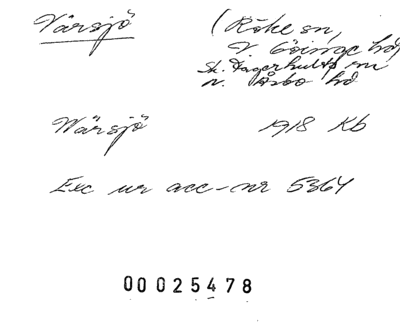 Värsjö
(Röke sn,
V. Göinge hd,
Sk. Fagerhults sn
N. Åsbo hd
Wärsjö 1918 Kb
Exc ur acc-nr 5364
00025478